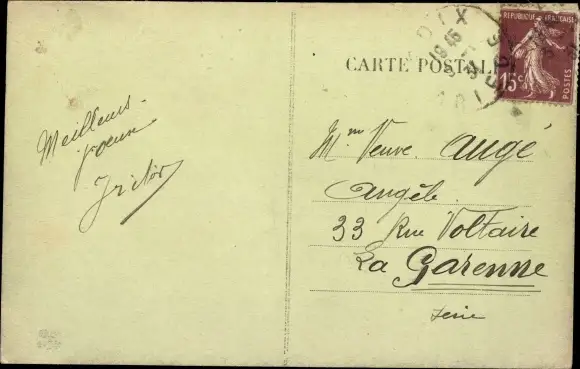 REPUBLIQUE FRANÇAISE
15c
POSTES
1945
CARTE POSTALE
Meilleurs
Mme Veuve Augé
Angèle
33 Rue Voltaire
La Garenne
Seine